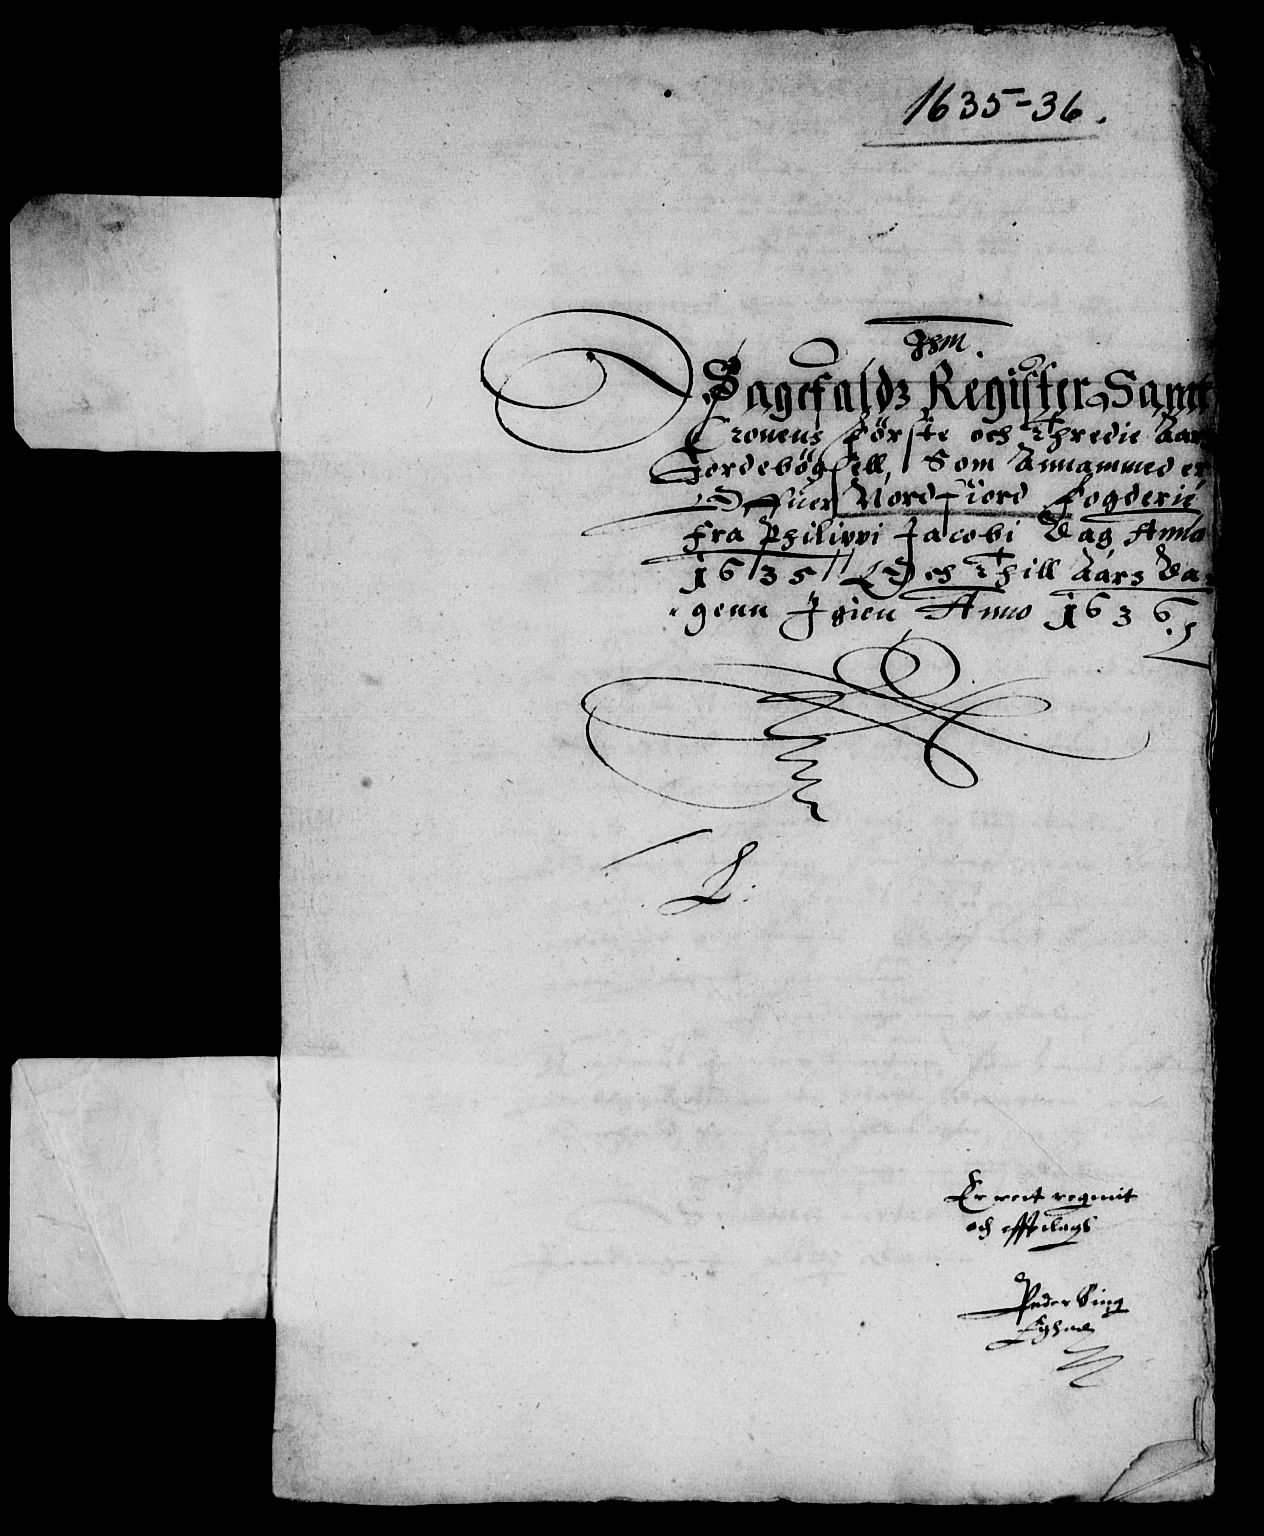 1635-36.
Ihm.
Sagefaldz Register Samt
Cronens förste och Thredie Aar
Jordebögsell, Som Annammed er
Offuer Nordfiord fogderie
fra Philippi Jacobi Dag Anno
1635 Och Thill Aars Da-
genn Igien Anno 1636.
L:
Er rect regnit
och efftilagt
Peder